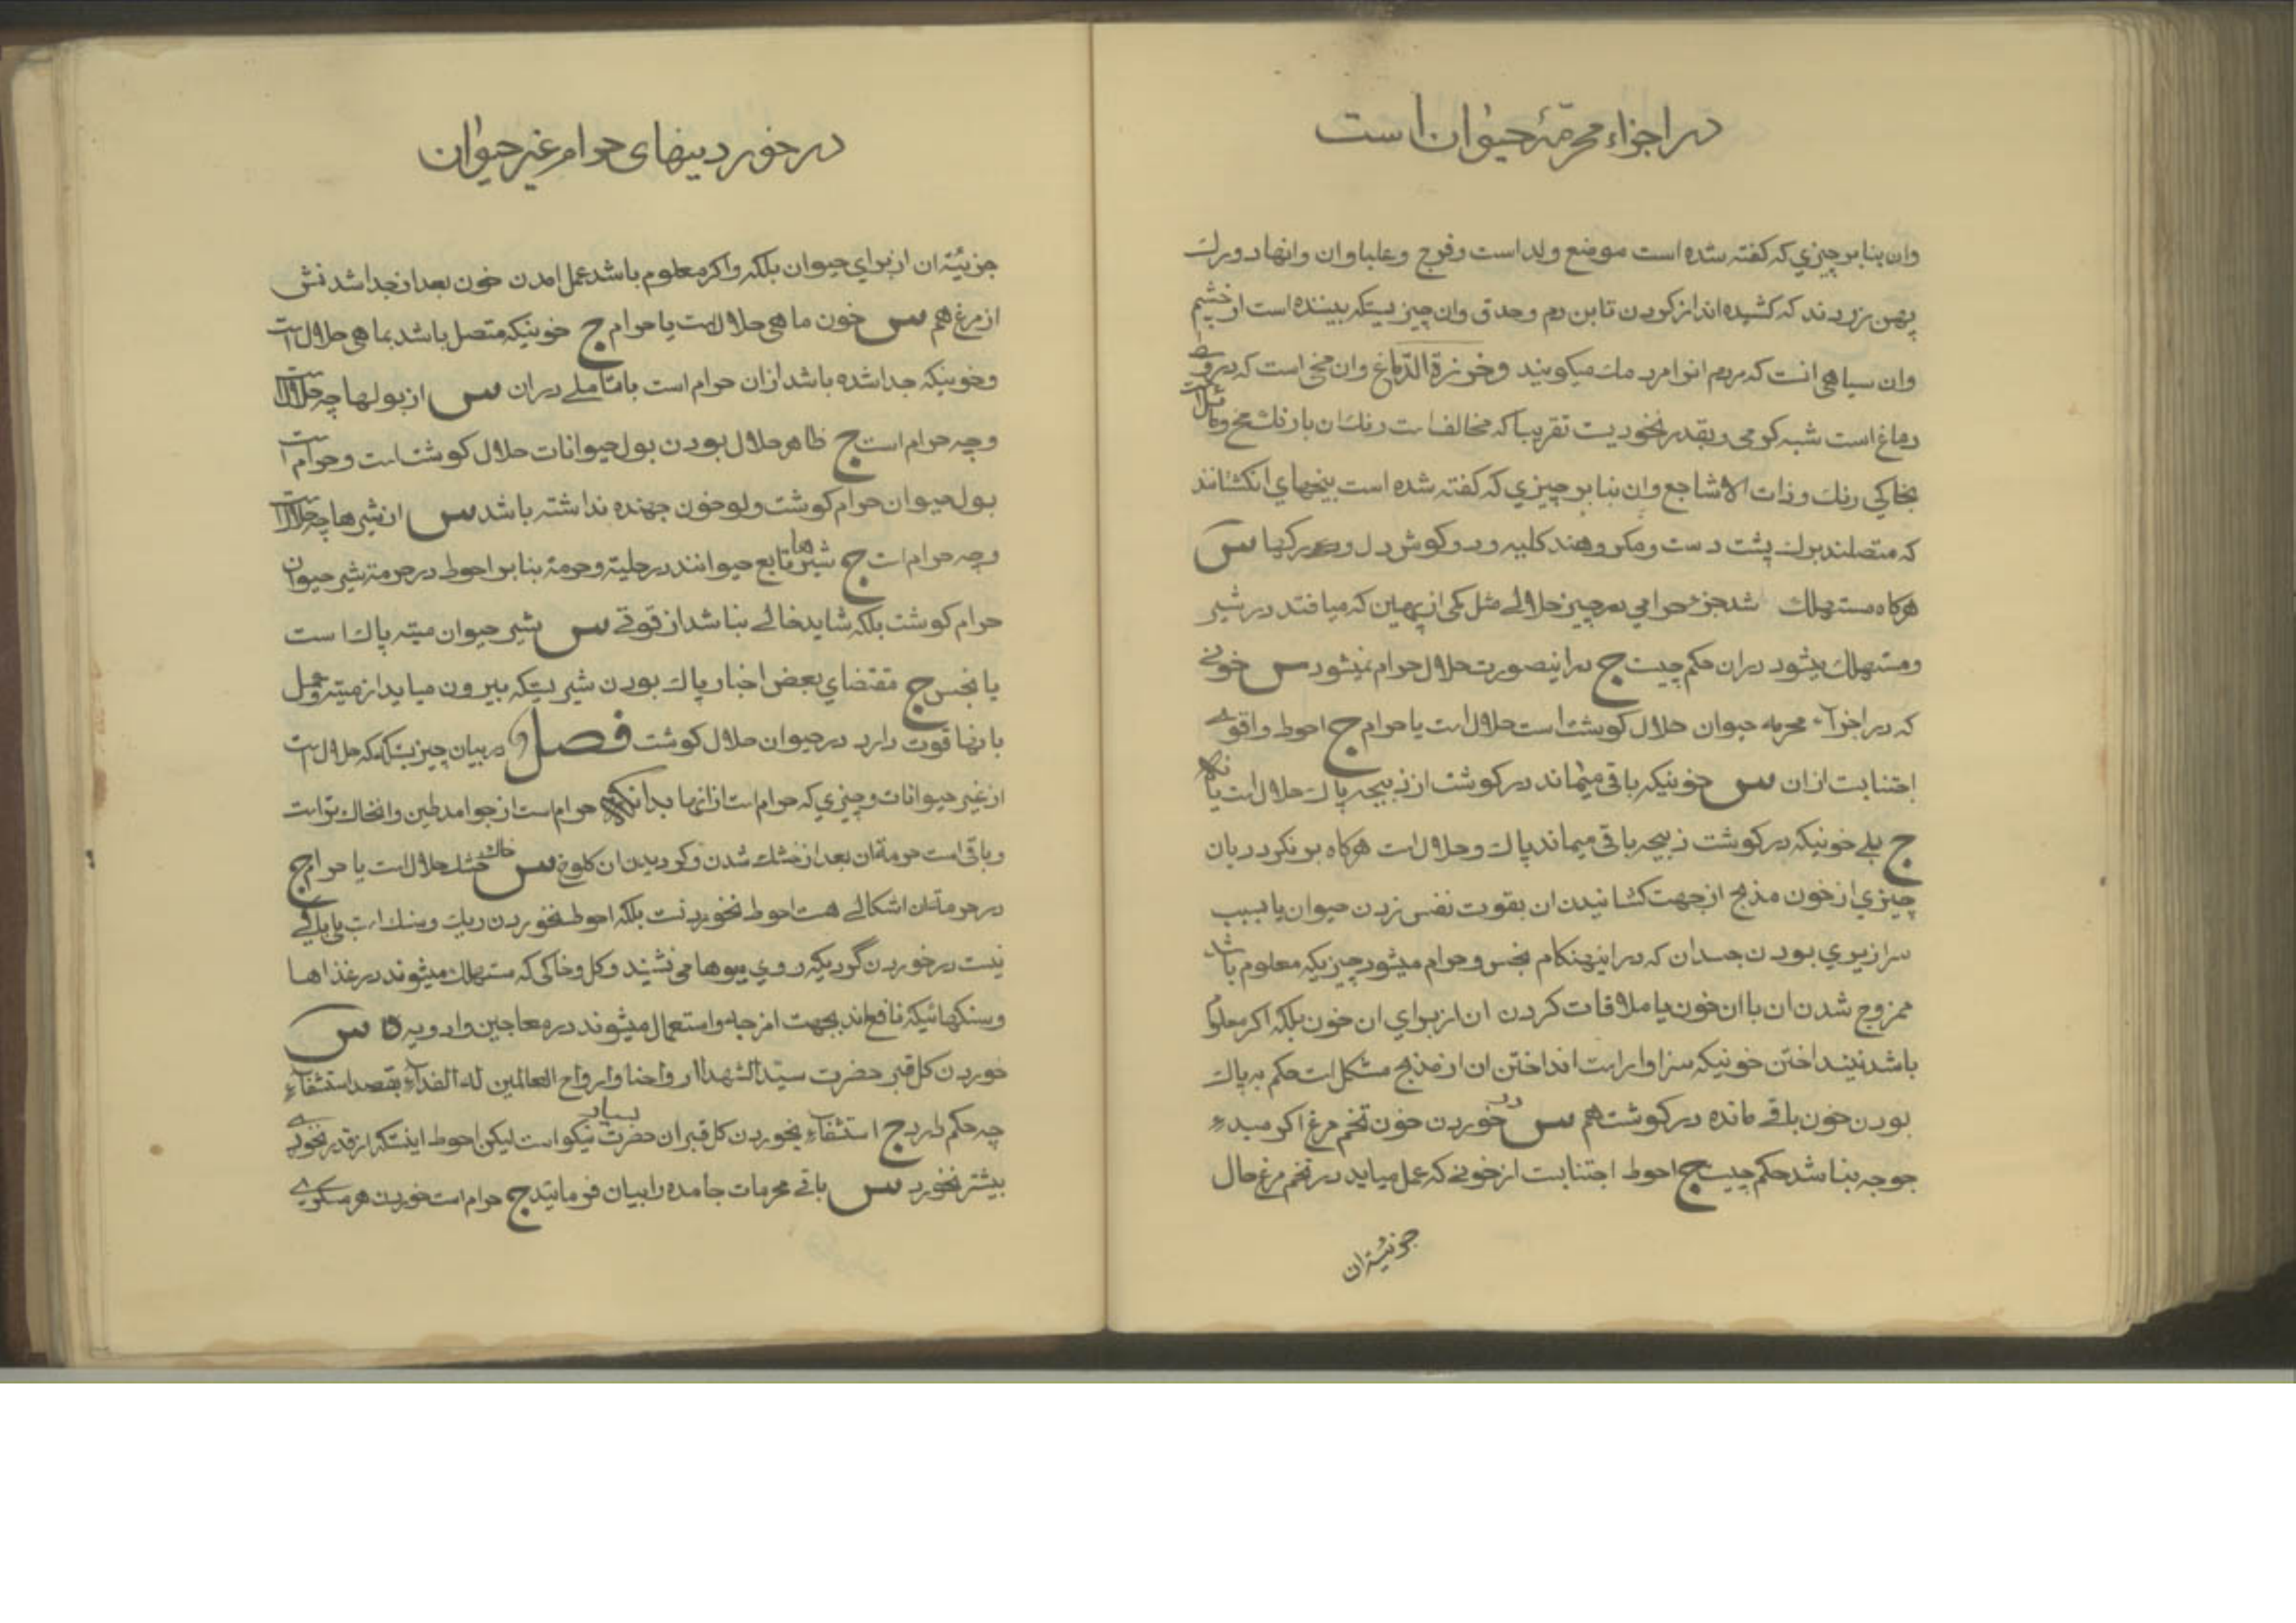 در اجزاء محرمّهٔ حیوان است
وان بنابر چیزي که کفته شده است موضع ولد است وفرج وعلباوان وانها دو رك
پهن زردند که کشیده اند از کردن تا بن دم وحدق وان چیزیستکه بیننده است از خشیم
وان سیاهي انست که مردم انرا مردمك میکویند وخرزة الدّماغ وان مخي است که در وسط
دماغ است شبه کرمي وبقدر نخودیست تقریباً که مخالف است رنك ان با رنك مخ ومایل است
بخاکي رنك وذات الاشاجع وان بنابر چیزي که کفته شده است بیخهاي انکشتانند
که متصلند برك پشت دست ومکروهند کلیه ودو کوش دل ورکها س
هرکاه مستهلك شد جزء حرامي در چیز حلالے مثل کمی از پهین که میافتد در شیر
ومستهلك میشود دران حکم چیست ج در اینصورت حلال حرام نمیشود س خونے
که در اجزآء محرمه حیوان حلال کوشت است حلال است یا حرام ج احوط واقوے
اجتنابست ازان س خونیکه باقی میماند در کوشت از ذبیحه پاك وحلال است یا نه
ج بلے خونیکه در کوشت ذبیحه باقی میماند پاك وحلال است هرکاه برنکردد بان
چیزي از خون مذبح از جهت کشانیدن ان بقوت نفس زدن حیوان یا بسبب
سرازیري بودن جسد ان که در اینهنکام نجس وحرام میشود چیزیکه معلوم باشد
ممزوج شدن ان با ان خون یا ملاقات کردن ان از براي ان خون بلکه اکر معلوم
باشد نینداختن خونیکه سزاوار است انداختن ان از مذبح مشکل است حکم به پاك
بودن خون باقے مانده در کوشت هم س در خوردن خون تخم مرغ اکر مبدء
جوجه بناشد حکم چیست ج احوط اجتنابست از خونے که عمل میاید در تخم مرغ حال
جزئیّة ان
در خوردینهای حرام غیر حیوان
جزئیّة ان از براي حیوان بلکه واکر معلوم باشد عمل امدن خون بعد از جدا شدنش
از مرغ هم س خون ماهي حلال است یا حرام ج خونیکه متصل باشد بماهي حلال است
وخونیکه جدا شده باشد ازان حرام است با تاملے دران س از بولها چه حلال است
وچه حرام است ج ظاهر حلال بودن بول حیوانات حلال کوشت است وحرام است
بول حیوان حرام کوشت ولو خون جهنده نداشته باشد س از شیرها چه حلال است
وچه حرام است ج شیرها تابع حیوانند در حلیة وحرمة بنابر احوط در حرمة شیر حیوان
حرام کوشت بلکه شاید خالے بناشد از قوتے س شیر حیوان میته پاك است
یا نجس ج مقتضاي بعض اخبار پاك بودن شیریستکه بیرون میاید از میته وعمل
بانها قوت دارد در حیوان حلال کوشت فصل در بیان چیزیستکه حلال است
از غیر حیوانات وچیزي که حرام است از انها بدانکه حرام است از جوامد طین وان خاك تراست
وباقی است حرمة ان بعد از خشك شدن وکردیدن ان کلوخ س خاك خشك حلال است یا حرام ج
در حرمة ان اشکالے هست احوط نخوردنست بلکه احوط نخوردن ریك وسنك است بلے باکے
نیست در خوردن کردیکه روي میوها می نشیند وکل وخاکی که مستهلك میشوند در غذاها
وسنکهائیکه نافع اند بجهت امزجه واستعمال میشوند در معاجین وادویه س
خوردن کل قبر حضرت سیّد الشهدآ ارواحنا وارواح العالمین له الفدآء بقصد استشفآء
چه حکم دارد ج استشفآء بخوردن کل قبر ان حضرت بسیار نیکو است لیکن احوط اینستکه از قدر نخودے
بیشتر نخورد س باقے محرمات جامده را بیان فرمائید ج حرام است خوردن هر مسکرے